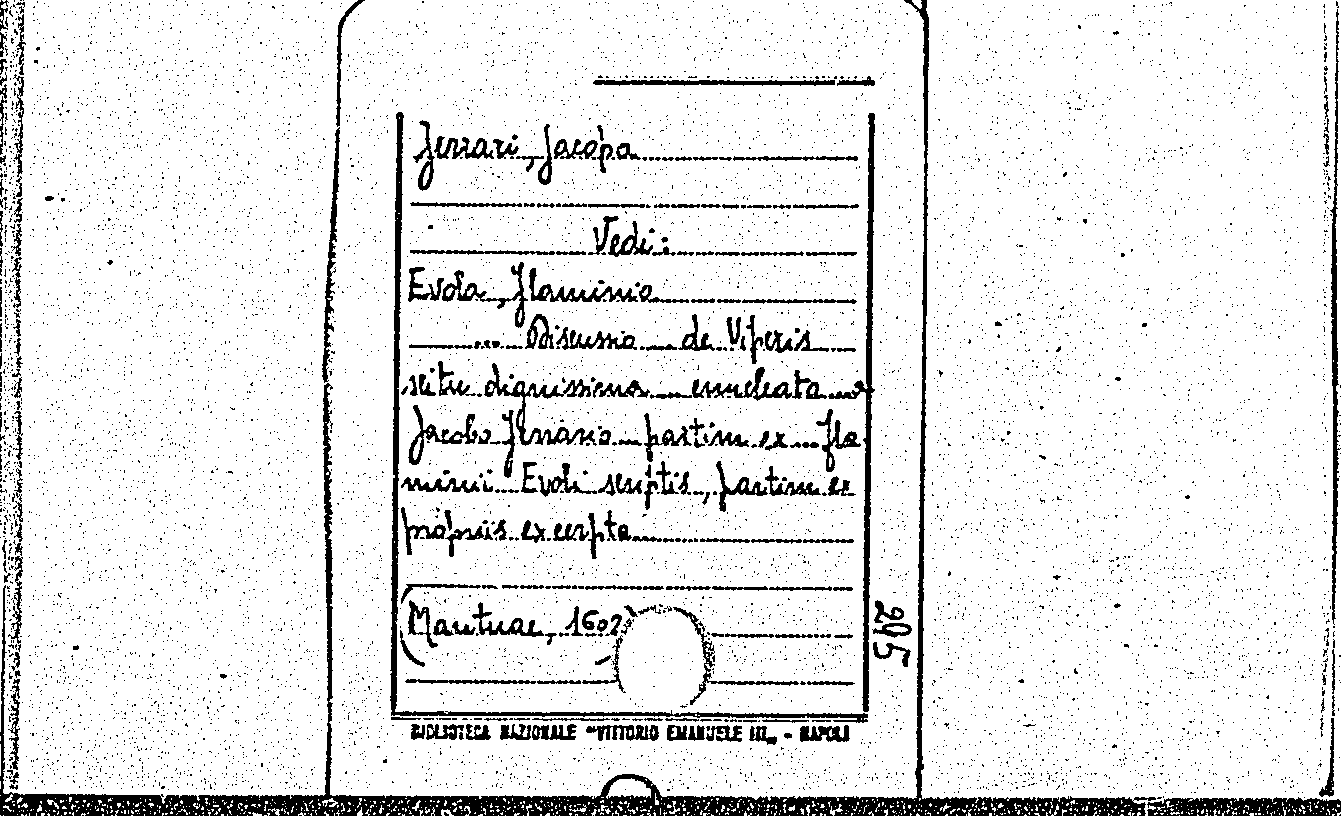 Ferrari, Jacopo
Vedi:
Evola, Flaminio
... Discussio de Viperis
scitu dignissima enucleata a
Jacobo Ferrario partim ex Fla-
minii Evoli scriptis, partim ex
propriis excerpta
(Mantuae, 1602)
205
BIBLIOTECA NAZIONALE "VITTORIO EMANUELE III„ - NAPOLI